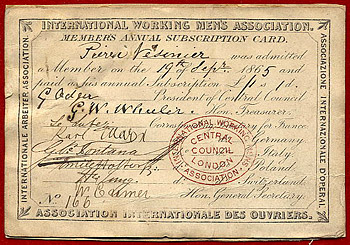 INTERNATIONAL WORKING MEN'S ASSOCIATION.
MEMBERS ANNUAL SUBSCRIPTION CARD.
Pierre Vésinier was admitted
as Member on the 19th Sept. 1865 and
paid as his annual Subscription
G. Odger President of Central Council
G. W. Wheeler Hon. Treasurer
E. Dupont Corresponding for France
Karl Marx Germany
G. P. Fontana Italy.
Poland
H. Jung Switzerland.
W. Cremer Hon. General Secretary.
No. 166
ASSOCIATION INTERNATIONALE DES OUVRIERS.
INTERNATIONALE ARBEITER ASSOCIATION
ASSOCIAZIONE INTERNAZIONALE D'OPERAI
INTERNATIONAL WORKING MEN'S
ASSOCIATION.
CENTRAL
COUNCIL
LONDON